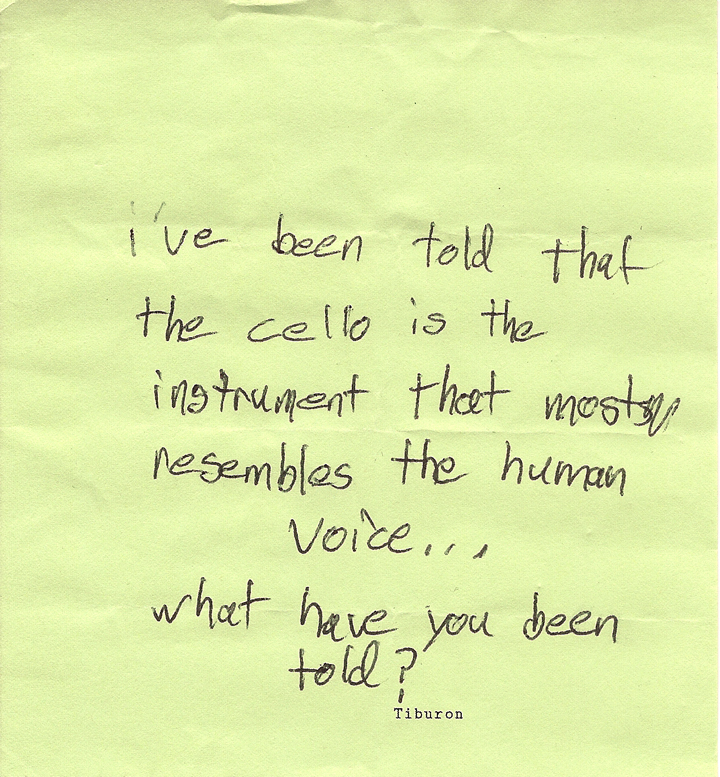 i've been told that
the cello is the
instrument that most
resembles the human
voice...
what have you been
told?
Tiburon